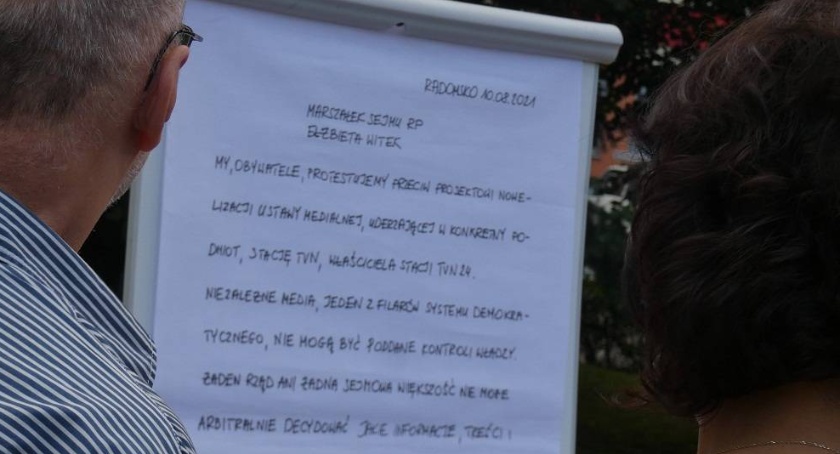 RADOMSKO 10.08.2021
MARSZAŁEK SEJMU RP
ELŻBIETA WITEK
MY, OBYWATELE, PROTESTUJEMY PRZECIW PROJEKTOWI NOWE-
LIZACJI USTAWY MEDIALNEJ, UDERZAJĄCEJ W KONKRETNY PO-
DMIOT, STACJĘ TVN, WŁAŚCICIELA STACJI TVN 24.
NIEZALEŻNE MEDIA, JEDEN Z FILARÓW SYSTEMU DEMOKRA-
TYCZNEGO, NIE MOGĄ BYĆ PODDANE KONTROLI WŁADZY.
ŻADEN RZĄD ANI ŻADNA SEJMOWA WIĘKSZOŚĆ NIE MOŻE
ARBITRALNIE DECYDOWAĆ JAKIE INFORMACJE, TREŚCI I